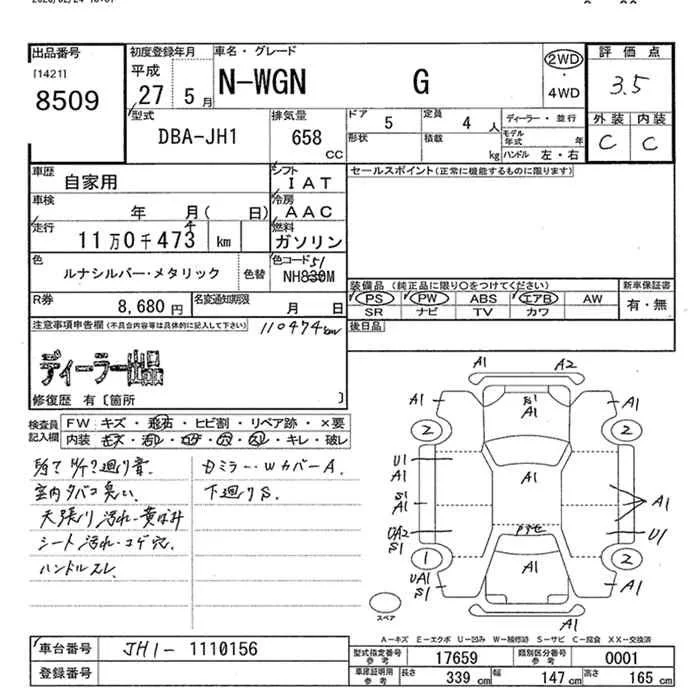 出品番号 初度登録年月 車名・グレード 評価点
[1421] 平成 N-WGN G 2WD 3.5
8509 27 5月 ・ 4WD 外装 内装
型式 排気量 ドア 5 定員 4人 ディーラー・並行 C C
DBA-JH1 658 CC 形状 積載 kg モデル年式 年
ハンドル 左・右
車歴 自家用 シフト IAT セールスポイント(正常に機能するものに限ります)
車検 年 月( 日) 冷房 AAC
走行 11万0千473 km 燃料 ガソリン
色 ルナシルバー・メタリック 色替 色コード 51
NH830M 装備品 (純正品に限り○をつけてください) 新車保証書
PS PW ABS エアB AW 有・無
R券 8,680円 名変通知期限 月 日 SR ナビ TV カワ
注意事項申告欄(不具合内容等は具体的に記入して下さい) 110474km 後日品
ディーラー出品
修復歴 有〔箇所 〕
検査員記入欄 FW:キズ・飛石・ヒビ割・リペア跡・×要
内装・キズ・汚レ・コゲ・穴・スレ・キレ・破レ
室内タバコ臭い、 下廻りS.
天張り汚れ・黄ばみ
シート汚れ・コゲ穴.
ハンドルスレ.
A1 A2
A1 S1 A1 A1
2 2
U1 A1
A1
S1 A1 A1
UA2 S1 U1
1 A1 2
UA1 S1 A1 A1
A1
スペア
A-キズ E-エクボ U-凹み W-補修跡 S-サビ C-腐食 XX-交換済
車台番号 JH1-1110156 型式指定番号 参考 17659 類別区分番号 参考 0001
登録番号 車庫証明用 参考 長さ 339 cm 幅 147 cm 高さ 165 cm